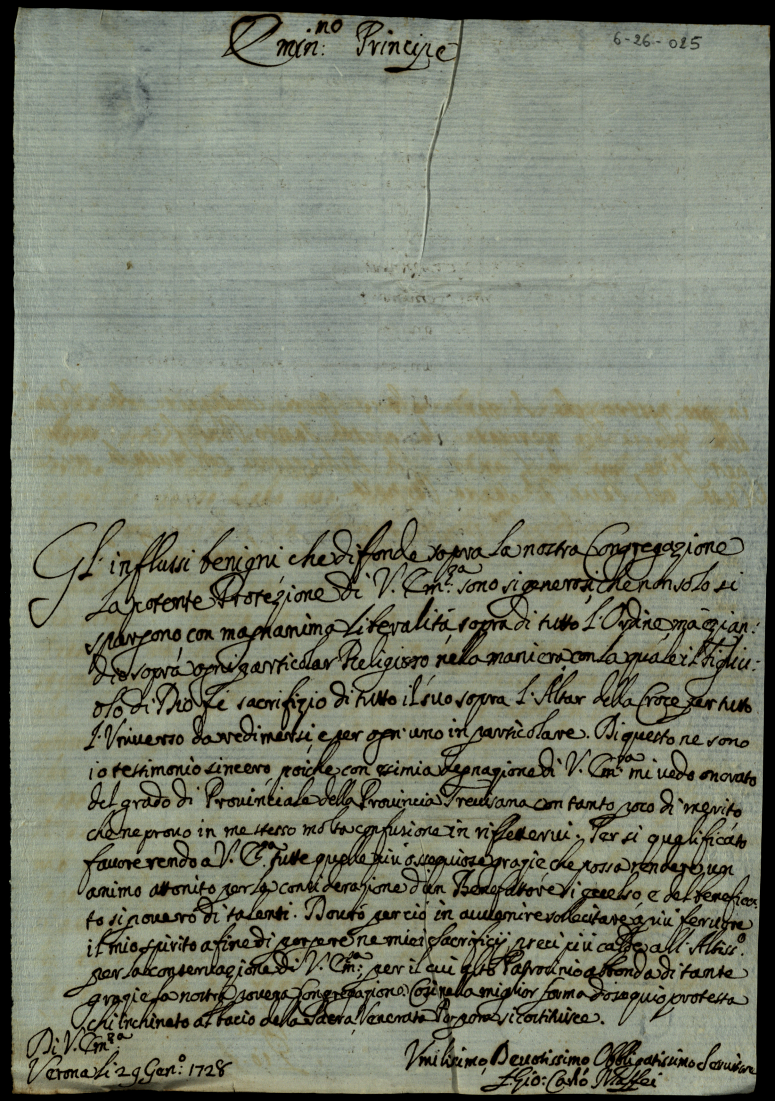 Emin.no Principe
6-26-025
Gl' influssi benigni che difonde sopra la nostra Congregazione
la potente Protezione di V. Em.za sono si generosi che non solo si
spargono con magnanima liberalità sopra di tutto l'Ordine, ma ezian:
dio sopra ogni particolar Religioso nella maniera con la quale il Figliu:
olo di Dio fè sacrifizio di tutto il suo sopra l'Altar della Croce per tutto
l'Universo da redimersi, e per ogn' uno in particolare. Di questo ne sono
io testimonio sincero, poiche con esimia degnazione di V. Em.za mi vedo onorato
del grado di Provinciale della Provincia Trevisana con tanto poco di merito
che ne provo in me stesso molta confusione in riflettervi. Per si qualificato
favore rendo a V. E.za tutte quelle più ossequiose grazie che possa rendere un
animo attonito per la considerazione d'un Benefattore si eccelso, e del benefica:
to si povero di talenti. Dovrò per ciò in avvenire sollecitare a più fervore
il mio spirito a fine di porgere ne miei Sacrificij preci più calde all' Altiss.o
per la conservazione di V. Em.za per il cui alto Patrocinio abbonda di tante
grazie la nostra povera Congregazione. Così nella miglior forma d'osequio protesta
chi inchinato al bacio della Sacra Venerata Porpora si costituisce.
Di V. Em.za
Verona li 29 Gen.o 1728
Umilissimo Devotissimo Obbligatissimo Servitore
F. Gio: Carlo Maffei